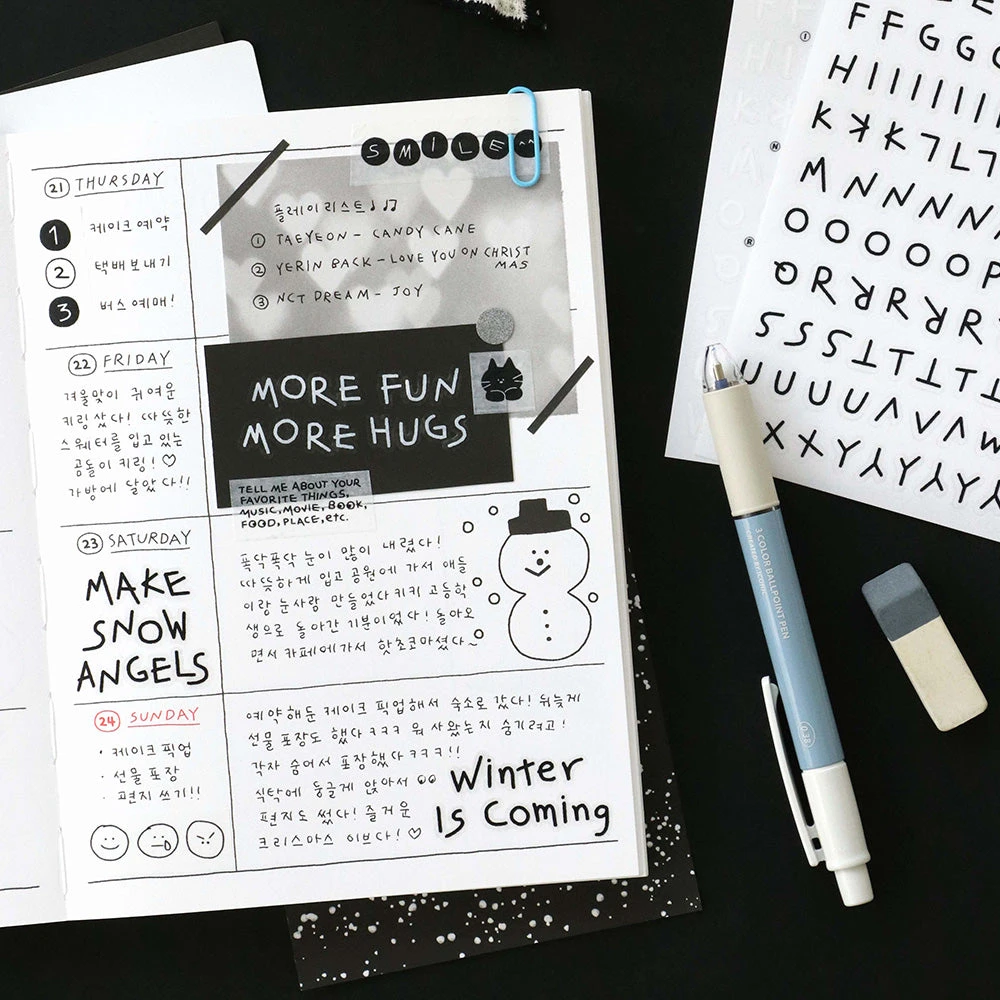 SMILE^^
21 THURSDAY
1 케이크 예약
2 택배 보내기
3 버스 예매!
플레이리스트♩♫
① TAEYEON - CANDY CANE
② YERIN BACK - LOVE YOU ON CHRIST
MAS
③ NCT DREAM - JOY
22 FRIDAY
겨울맞이 귀여운
키링 샀다! 따뜻한
스웨터를 입고 있는
곰돌이 키링! ♡
가방에 달았다!!
MORE FUN
MORE HUGS
TELL ME ABOUT YOUR
FAVORITE THINGS,
MUSIC, MOVIE, BOOK,
FOOD, PLACE, etc.
23 SATURDAY
MAKE
SNOW
ANGELS
폭닥폭닥 눈이 많이 내렸다!
따뜻하게 입고 공원에 가서 애들
이랑 눈사람 만들었다 키키 고등학
생으로 돌아간 기분이었다! 돌아오
면서 카페에 가서 핫초코 마셨다~
24 SUNDAY
· 케이크 픽업
· 선물 포장
· 편지 쓰기!!
예약해둔 케이크 픽업해서 숙소로 갔다! 뒤늦게
선물 포장도 했다 ㅋㅋㅋ 뭐 사왔는지 숨기려고!
각자 숨어서 포장했다 ㅋㅋㅋ!!
식탁에 둥글게 앉아서
편지도 썼다! 즐거운
크리스마스 이브다! ♡
Winter
Is Coming
FFGGG
HIIIIIII
KKKLL
MNNNN
OOOOOP
QRRRRR
SSSSTTTT
UUUUVVW
XXYYYY
3 COLOR BALLPOINT PEN
CREATED BY ICONIC
0.38